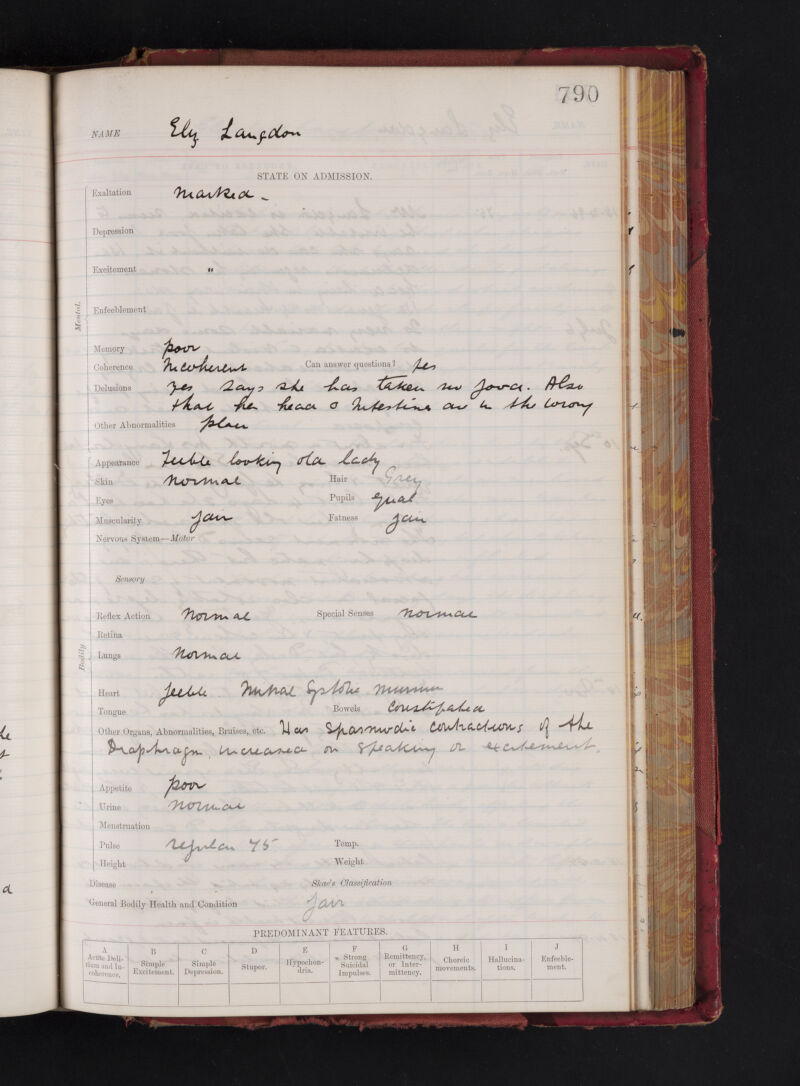 790
NAME Elz Langdon
STATE ON ADMISSION.
Mental.
Exaltation Marked -
Depression
Excitement "
Enfeeblement
Memory poor
Coherence Incoherent Can answer questions? yes
Delusions yes says she has taken no food. Also
that her head & Intestines are in the wrong
Other Abnormalities place
Bodily
Appearance Feeble looking old lady
Skin Normal Hair Grey
Eyes Pupils equal
Muscularity fair Fatness fair
Nervous System—Motor
Sensory
Reflex Action Normal Special Senses Normal
Retina
Lungs Normal
Heart feeble. Mitral Systolic murmur
Tongue Bowels Constipated
Other Organs, Abnormalities, Bruises, etc. Has Spasmodic contractions of the
Diaphragm, increased on speaking or excitement.
Appetite poor
Urine normal
Menstruation
Pulse regular 75 Temp.
Height Weight
Disease Skae's Classification
General Bodily Health and Condition fair
PREDOMINANT FEATURES.
A B C D E F G H I J
Acute Deli- Simple Simple Stupor. Hypochon- Strong Remittency, Choreic Hallucina- Enfeeble-
rium and In- Excitement. Depression. dria. Suicidal or Inter- movements. tions. ment.
coherence. Impulses. mittency.